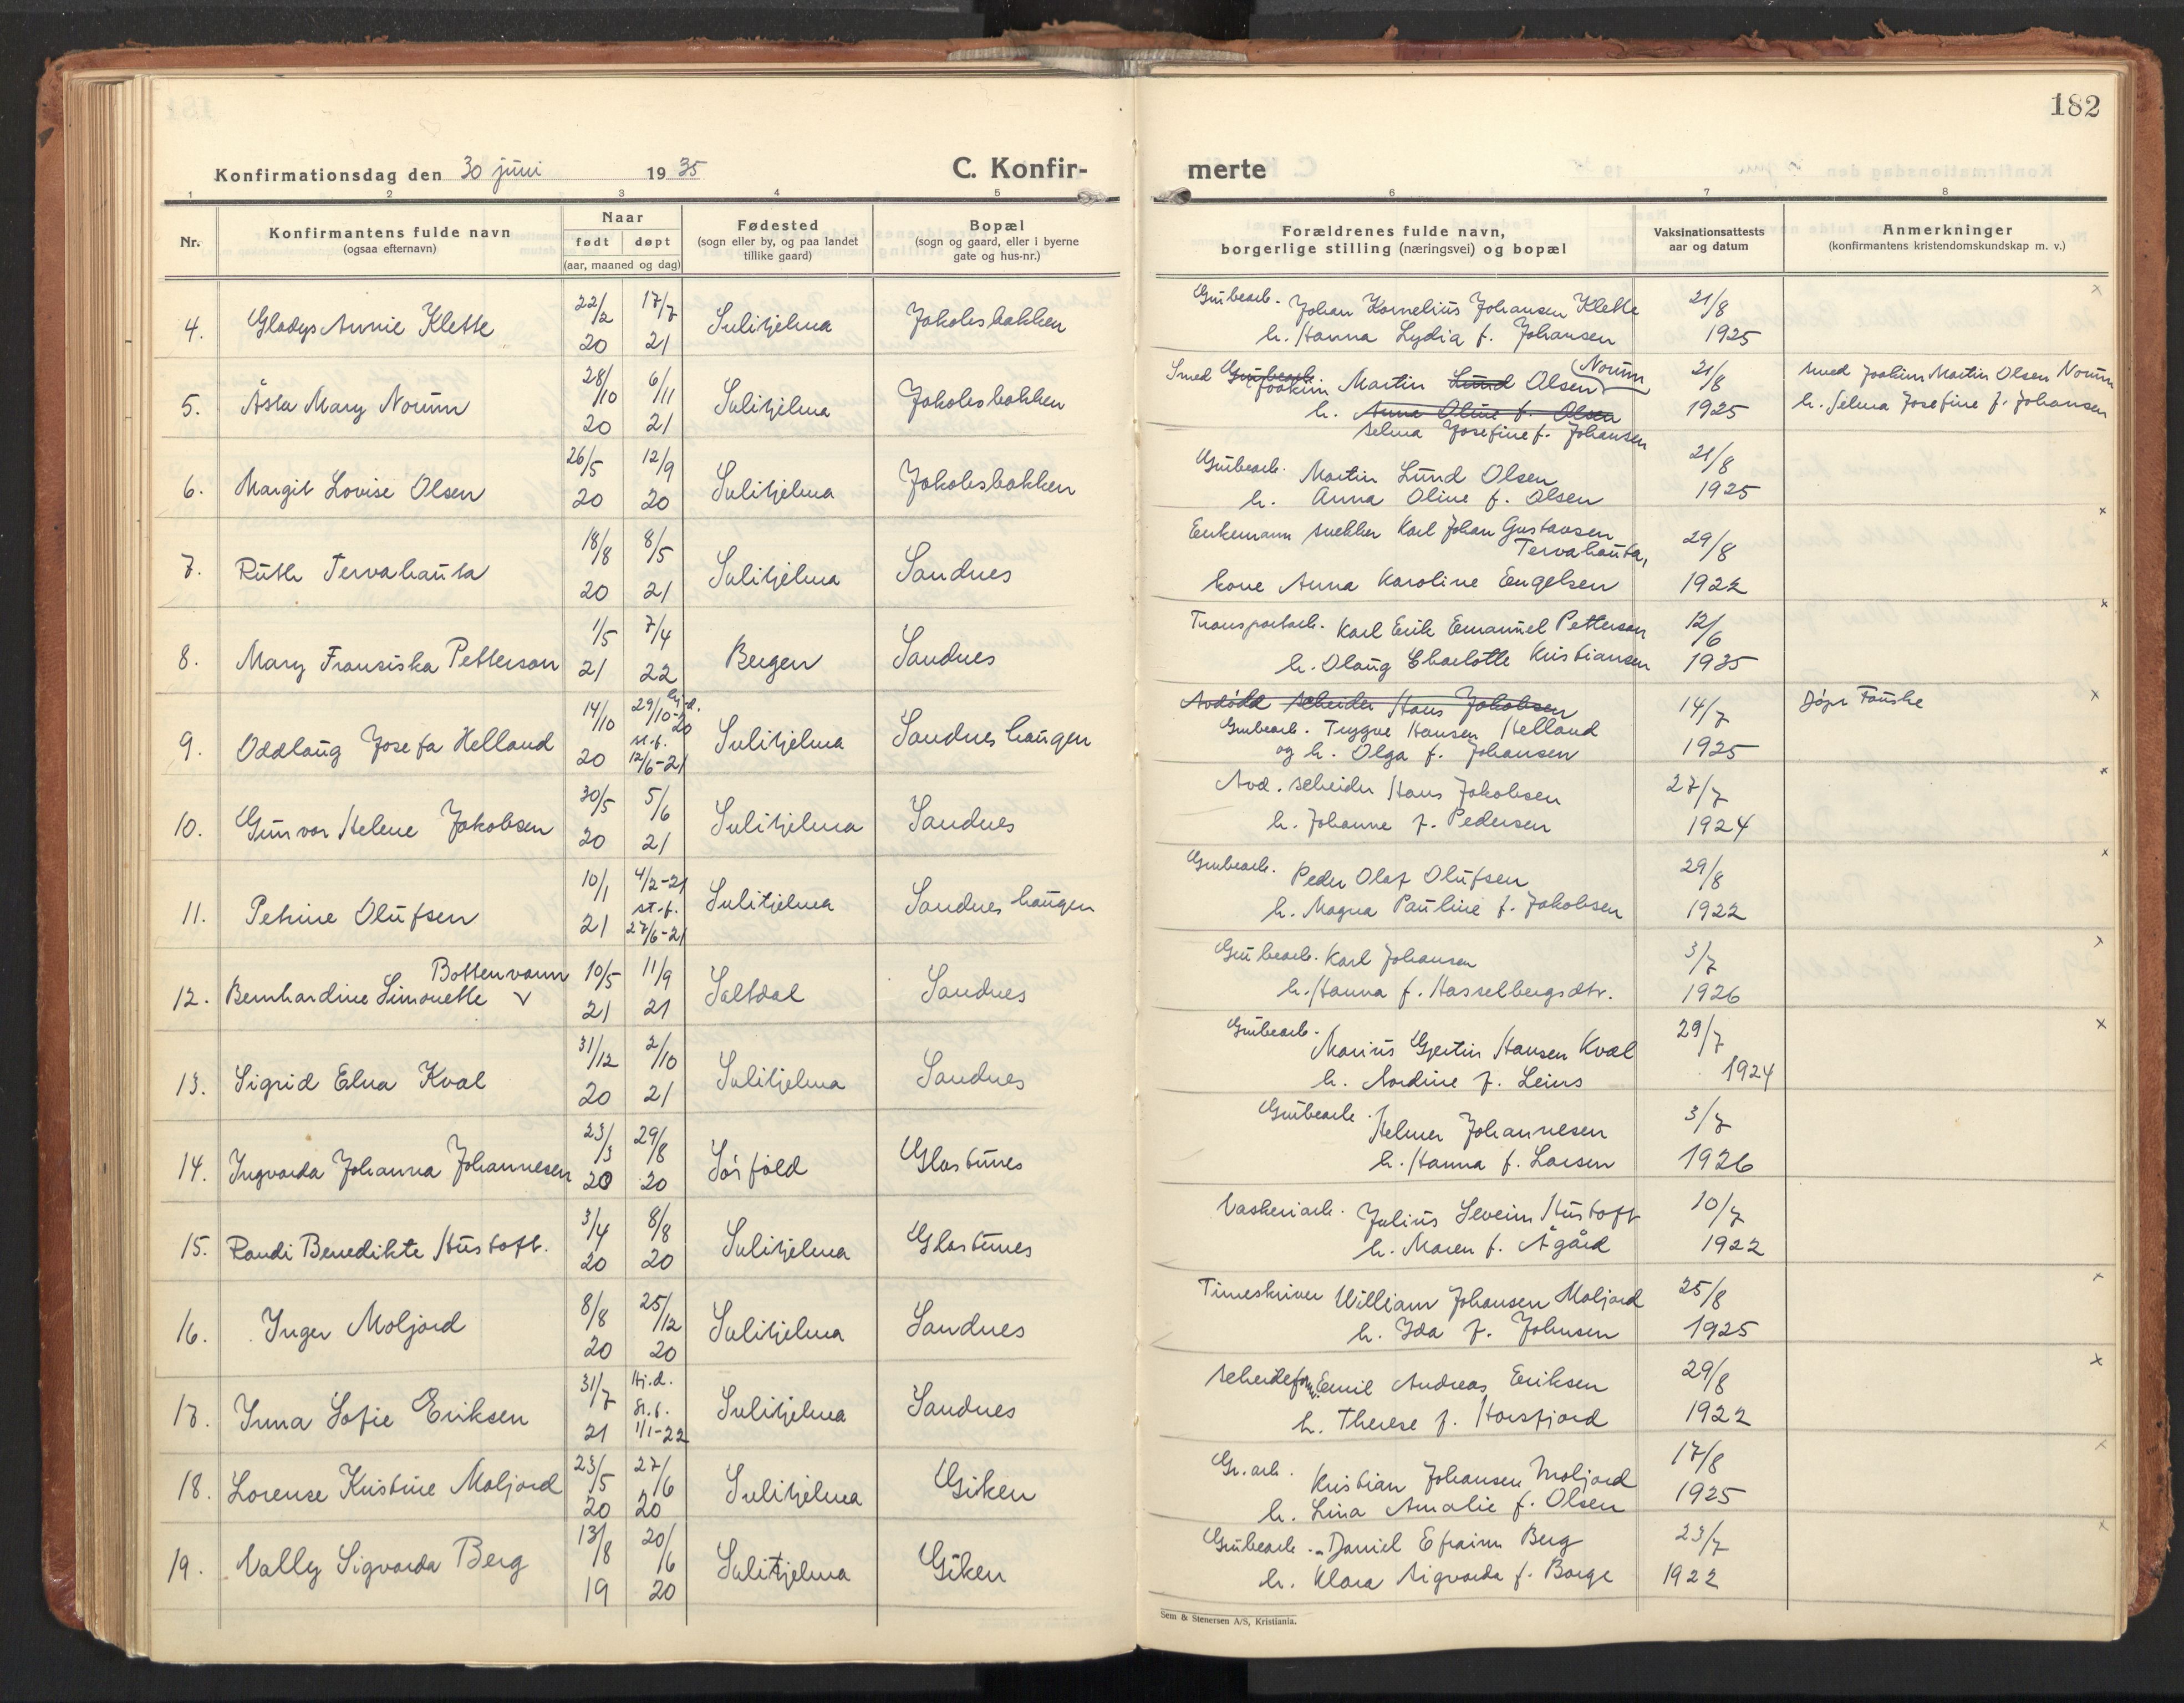 182
Konfirmationsdag den 30 juni 1935
C. Konfirmerte
1 2 3 4 5 6 7 8
Nr.
Konfirmantens fulde navn
(ogsaa efternavn)
Naar
født døpt
(aar, maaned og dag)
Fødested
(sogn eller by, og paa landet
tillike gaard)
Bopæl
(sogn og gaard, eller i byerne
gate og hus-nr.)
Forældrenes fulde navn,
borgerlige stilling (næringsvei) og bopæl
Vaksinationsattests
aar og datum
Anmerkninger
(konfirmantens kristendomskundskap m. v.)
4. Gladys Annie Klette 22/2 20 17/7 21 Sulitjelma Jakobsbakken
Grubearb. Johan Kornelius Johansen Klette
h. Hanna Lydia f. Johansen
21/8 1925 x
5. Åsta Mary Norum 28/10 20 6/11 21 Sulitjelma Jakobsbakken
Smed Grubearb. Joakim Martin Lund Olsen Norum
h. Anna Oline f. Olsen
Selma Josefine f. Johansen
21/8 1925
Smed Joakim Martin Olsen Norum
h. Selma Josefine f. Johansen
6. Margit Lovise Olsen 26/5 20 12/9 20 Sulitjelma Jakobsbakken
Grubearb. Martin Lund Olsen
h. Anna Oline f. Olsen
21/8 1925
7. Ruth Tervahauta 18/8 20 8/5 21 Sulitjelma Sandnes
Enkemann snekker Karl Johan Gustavsen
Tervahauta,
kone Anna Karoline Engelsen
29/8 1922 x
8. Mary Fransiska Petterson 1/5 21 7/4 22 Bergen Sandnes
Transportarb. Karl Erik Emanuel Petterson
h. Olaug Charlotte Kristiansen
12/6 1935 x
9. Oddlaug Josefa Helland 14/10 20 29/10-20 hj.d. st.f. 12/6-21 Sulitjelma Sandneshaugen
Avdødd scheider Hans Jakobsen
Grubearb. Trygve Hansen Helland
og h. Olga f. Johansen
14/7 1925
Døpt Fauske x
10. Gunvor Helene Jakobsen 30/5 20 5/6 21 Sulitjelma Sandnes
Avd. scheider Hans Jakobsen
h. Johanne f. Pedersen
27/7 1924 x
11. Petrine Olufsen 10/1 21 4/2-21 st.f. 27/6-21 Sulitjelma Sandneshaugen
Grubearb. Peder Olaf Olufsen
h. Magna Pauline f. Jakobsen
29/8 1922 x
12. Bernhardine Simonette Bottenvann v 10/5 21 11/9 21 Saltdal Sandnes
Grubearb. Karl Johansen
h. Hanna f. Hasselbergsdtr.
3/7 1926 x
13. Sigrid Elna Kval 31/12 20 2/10 21 Sulitjelma Sandnes
Grubearb. Marius Gjertin Hansen Kval
h. Nordine f. Leins
29/7 1924 x
14. Ingvarda Johanna Johannesen 23/3 20 29/8 20 Sørfold Glastunes
Grubearb. Helmer Johannesen
h. Hanna f. Larsen
3/7 1926
15. Randi Benedikte Hustoft. 3/4 20 8/8 20 Sulitjelma Glastunes
Vaskeriarb. Julius Severin Hustoft
h. Maren f. Ågård
10/7 1922
16. Inger Moljord 8/8 20 25/12 20 Sulitjelma Sandnes
Timeskriver William Johansen Moljord
h. Ida f. Johnsen
25/8 1925 x
17. Irma Sofie Eriksen 31/7 21 Hj.d. st.f. 1/1-22 Sulitjelma Sandnes
Scheideform. Emil Andreas Eriksen
h. Therese f. Horsfjord
29/8 1922 x
18. Lorense Kristine Moljord 23/5 20 27/6 20 Sulitjelma Giken
Gr.arb. Kristian Johansen Moljord
h. Lina Amalie f. Olsen
17/8 1925 x
19. Nally Sigvarda Berg 13/8 19 20/6 20 Sulitjelma Giken
Grubearb. Daniel Efraim Berg
h. Klara Sigvarda f. Borge
23/7 1922 x
Sem & Stenersen A/S, Kristiania.